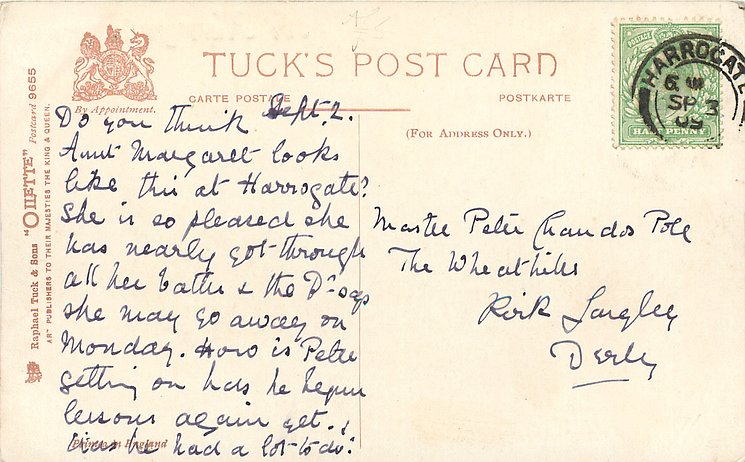 TUCK'S POST CARD
By Appointment.
CARTE POSTALE
POSTKARTE
(FOR ADDRESS ONLY.)
Raphael Tuck & Sons "OILETTE" Postcard 9655
ART PUBLISHERS TO THEIR MAJESTIES THE KING & QUEEN.
POSTAGE
HALF PENNY
HARROGATE
SP 3
Sept. 2.
Do you think
Aunt Margaret looks
like this at Harrogate?
She is so pleased she
has nearly got through
all her baths & the Dr. says
she may go away on
Monday. How is Peter
getting on has he begun
lessons again yet.
has he had a lot to do?
Printed in England
Master Peter Chandos Pole
The Wheathills
Kirk Langley
Derby